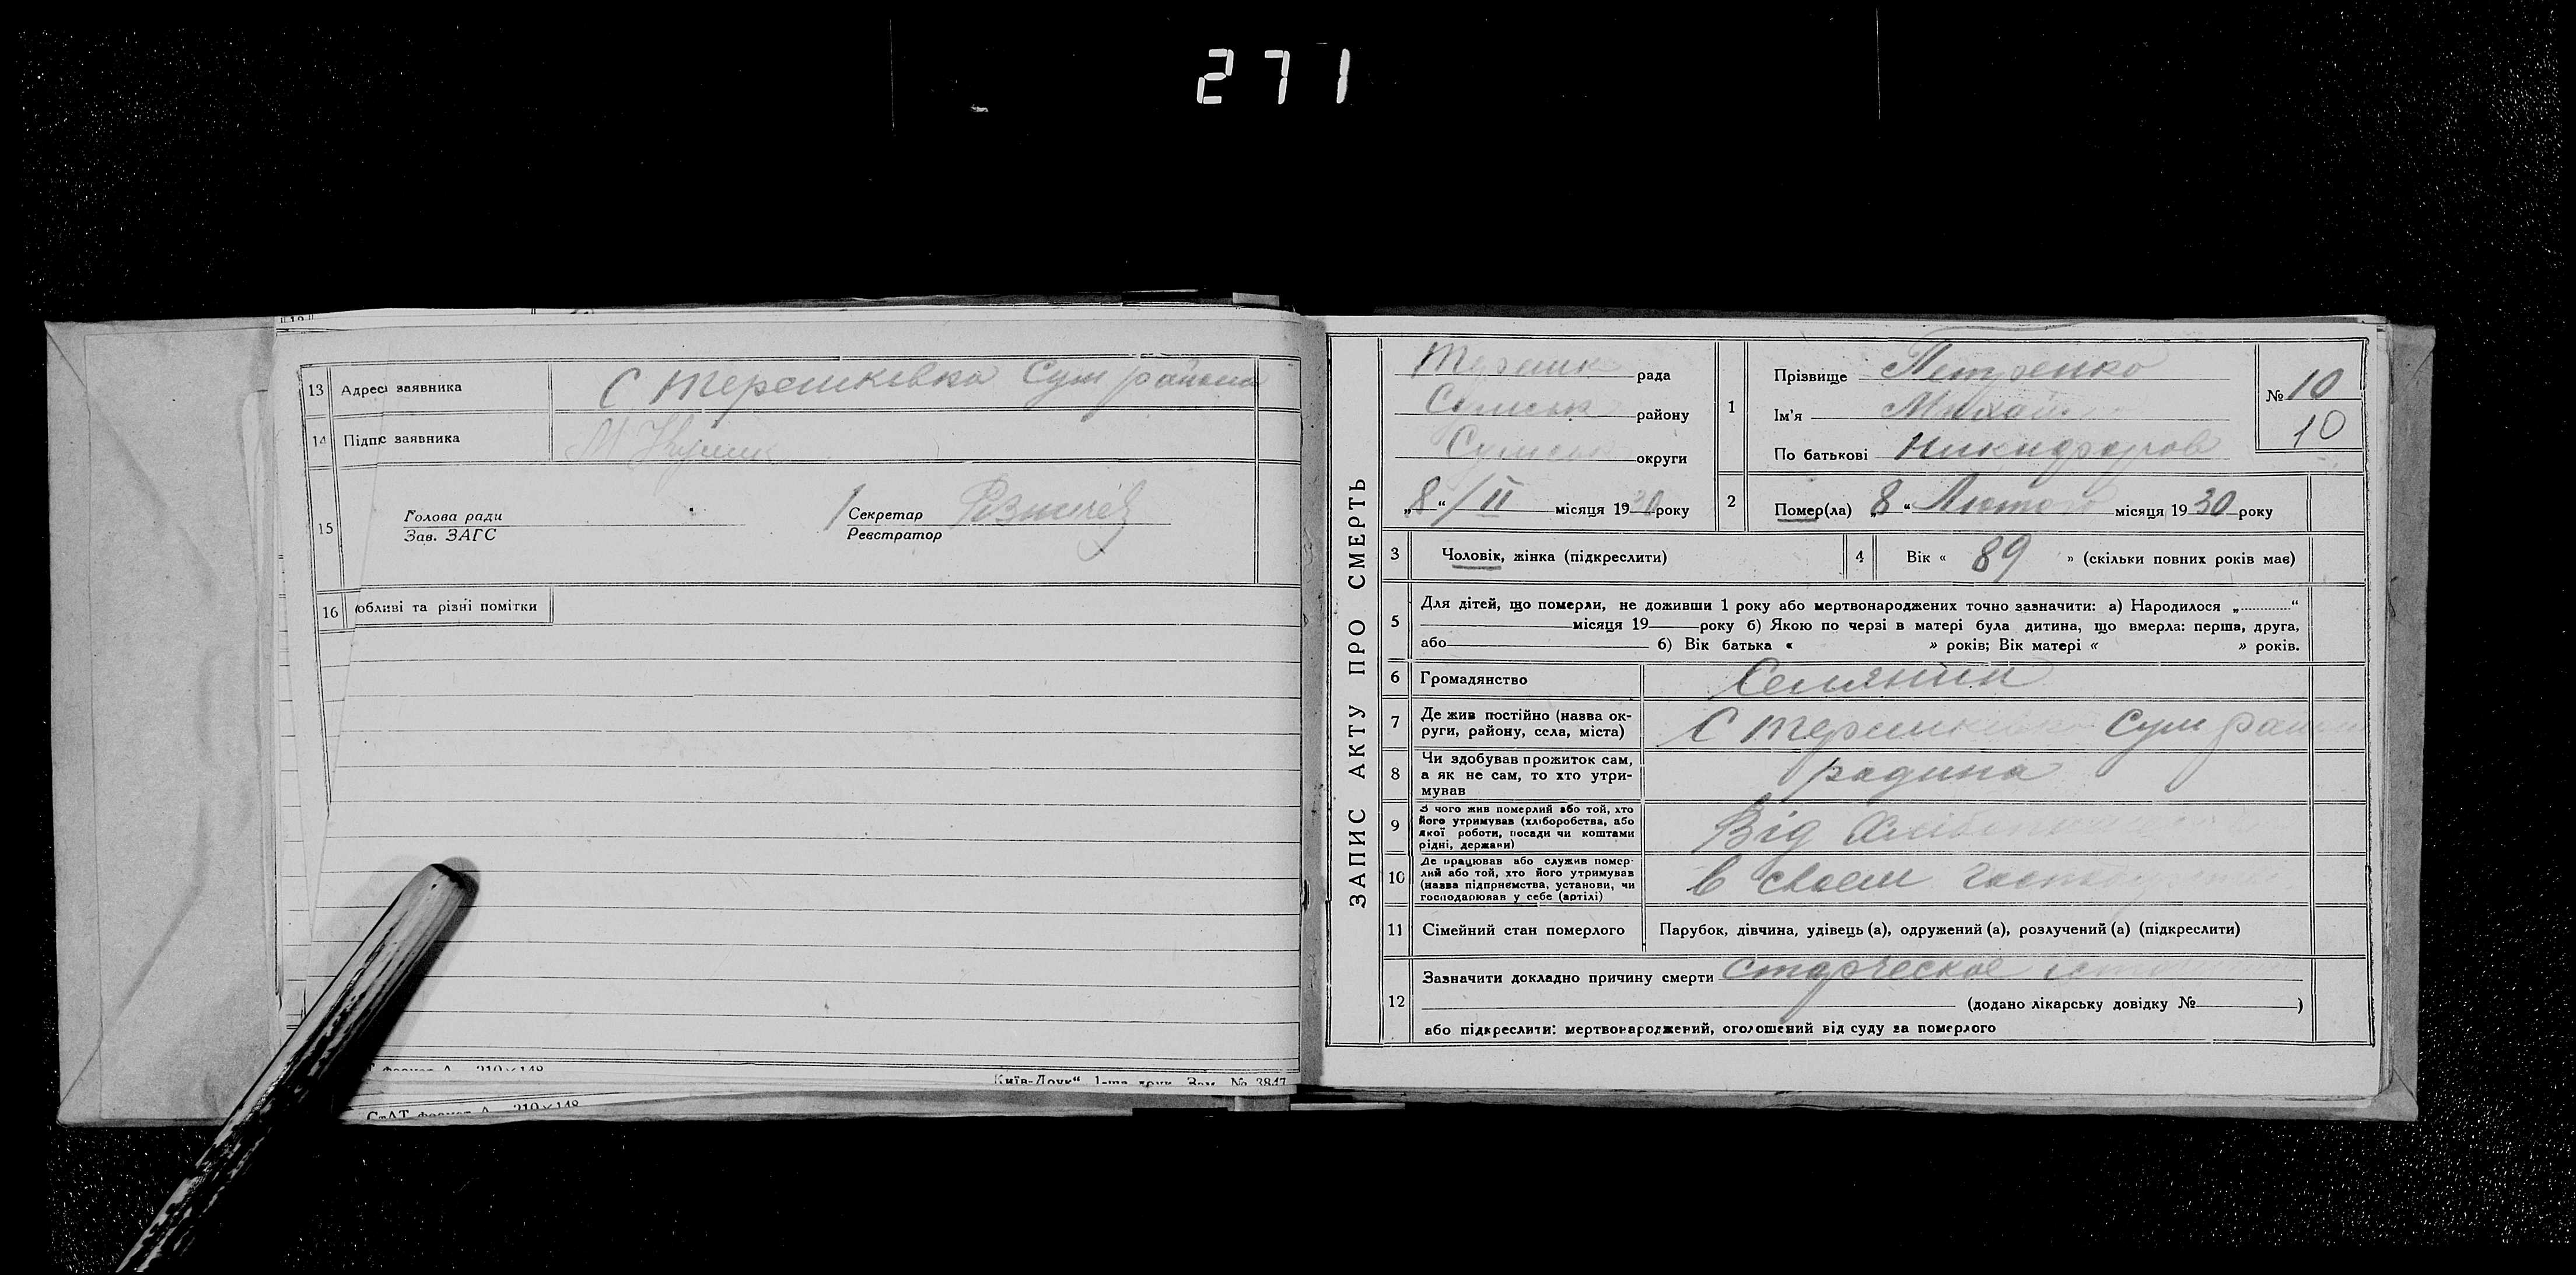 271
13 Адреса заявника С Терешковка Сум района
14 Підпис заявника
15 Голова ради
Зав. ЗАГС
Секретар
Реєстратор
16 обливі та різні помітки
Київ-Друк“ 1-ша друк. Зам. № 3847
СтАТ формат А 210×148
ЗАПИС АКТУ ПРО СМЕРТЬ
Терешк рада
Сумськ району
Сумськ округи
„8“/II місяця 1930 року
1 Прізвище Петренко
Ім’я Михайл
По батькові Никифоров
№ 10
10
2 Помер(ла) „8“ Лютого місяця 1930 року
3 Чоловік, жінка (підкреслити)
4 Вік « 89 » (скільки повних років має)
5 Для дітей, що померли, не доживши 1 року або мертвонароджених точно зазначити: а) Народилося „............“
місяця 19 року б) Якою по черзі в матері була дитина, що вмерла: перша, друга,
або б) Вік батька « » років; Вік матері « » років.
6 Громадянство Селянин
7 Де жив постійно (назва ок-
руги, району, села, міста) С Терешк Сум рай
8 Чи здобував прожиток сам,
а як не сам, то хто утри-
мував родина
9 З чого жив померлий або той, хто
його утримував (хліборобства, або
якої роботи, посади чи коштами
рідні, держави) Від
10 Де працював або служив помер-
лий або той, хто його утримував
(назва підприємства, установи, чи
господарював у себе (артілі) в своем
11 Сімейний стан померлого Парубок, дівчина, удівець (а), одружений (а), розлучений (а) (підкреслити)
12 Зазначити докладно причину смерти старческое
(додано лікарську довідку № )
або підкреслити: мертвонароджений, оголошений від суду за померлого